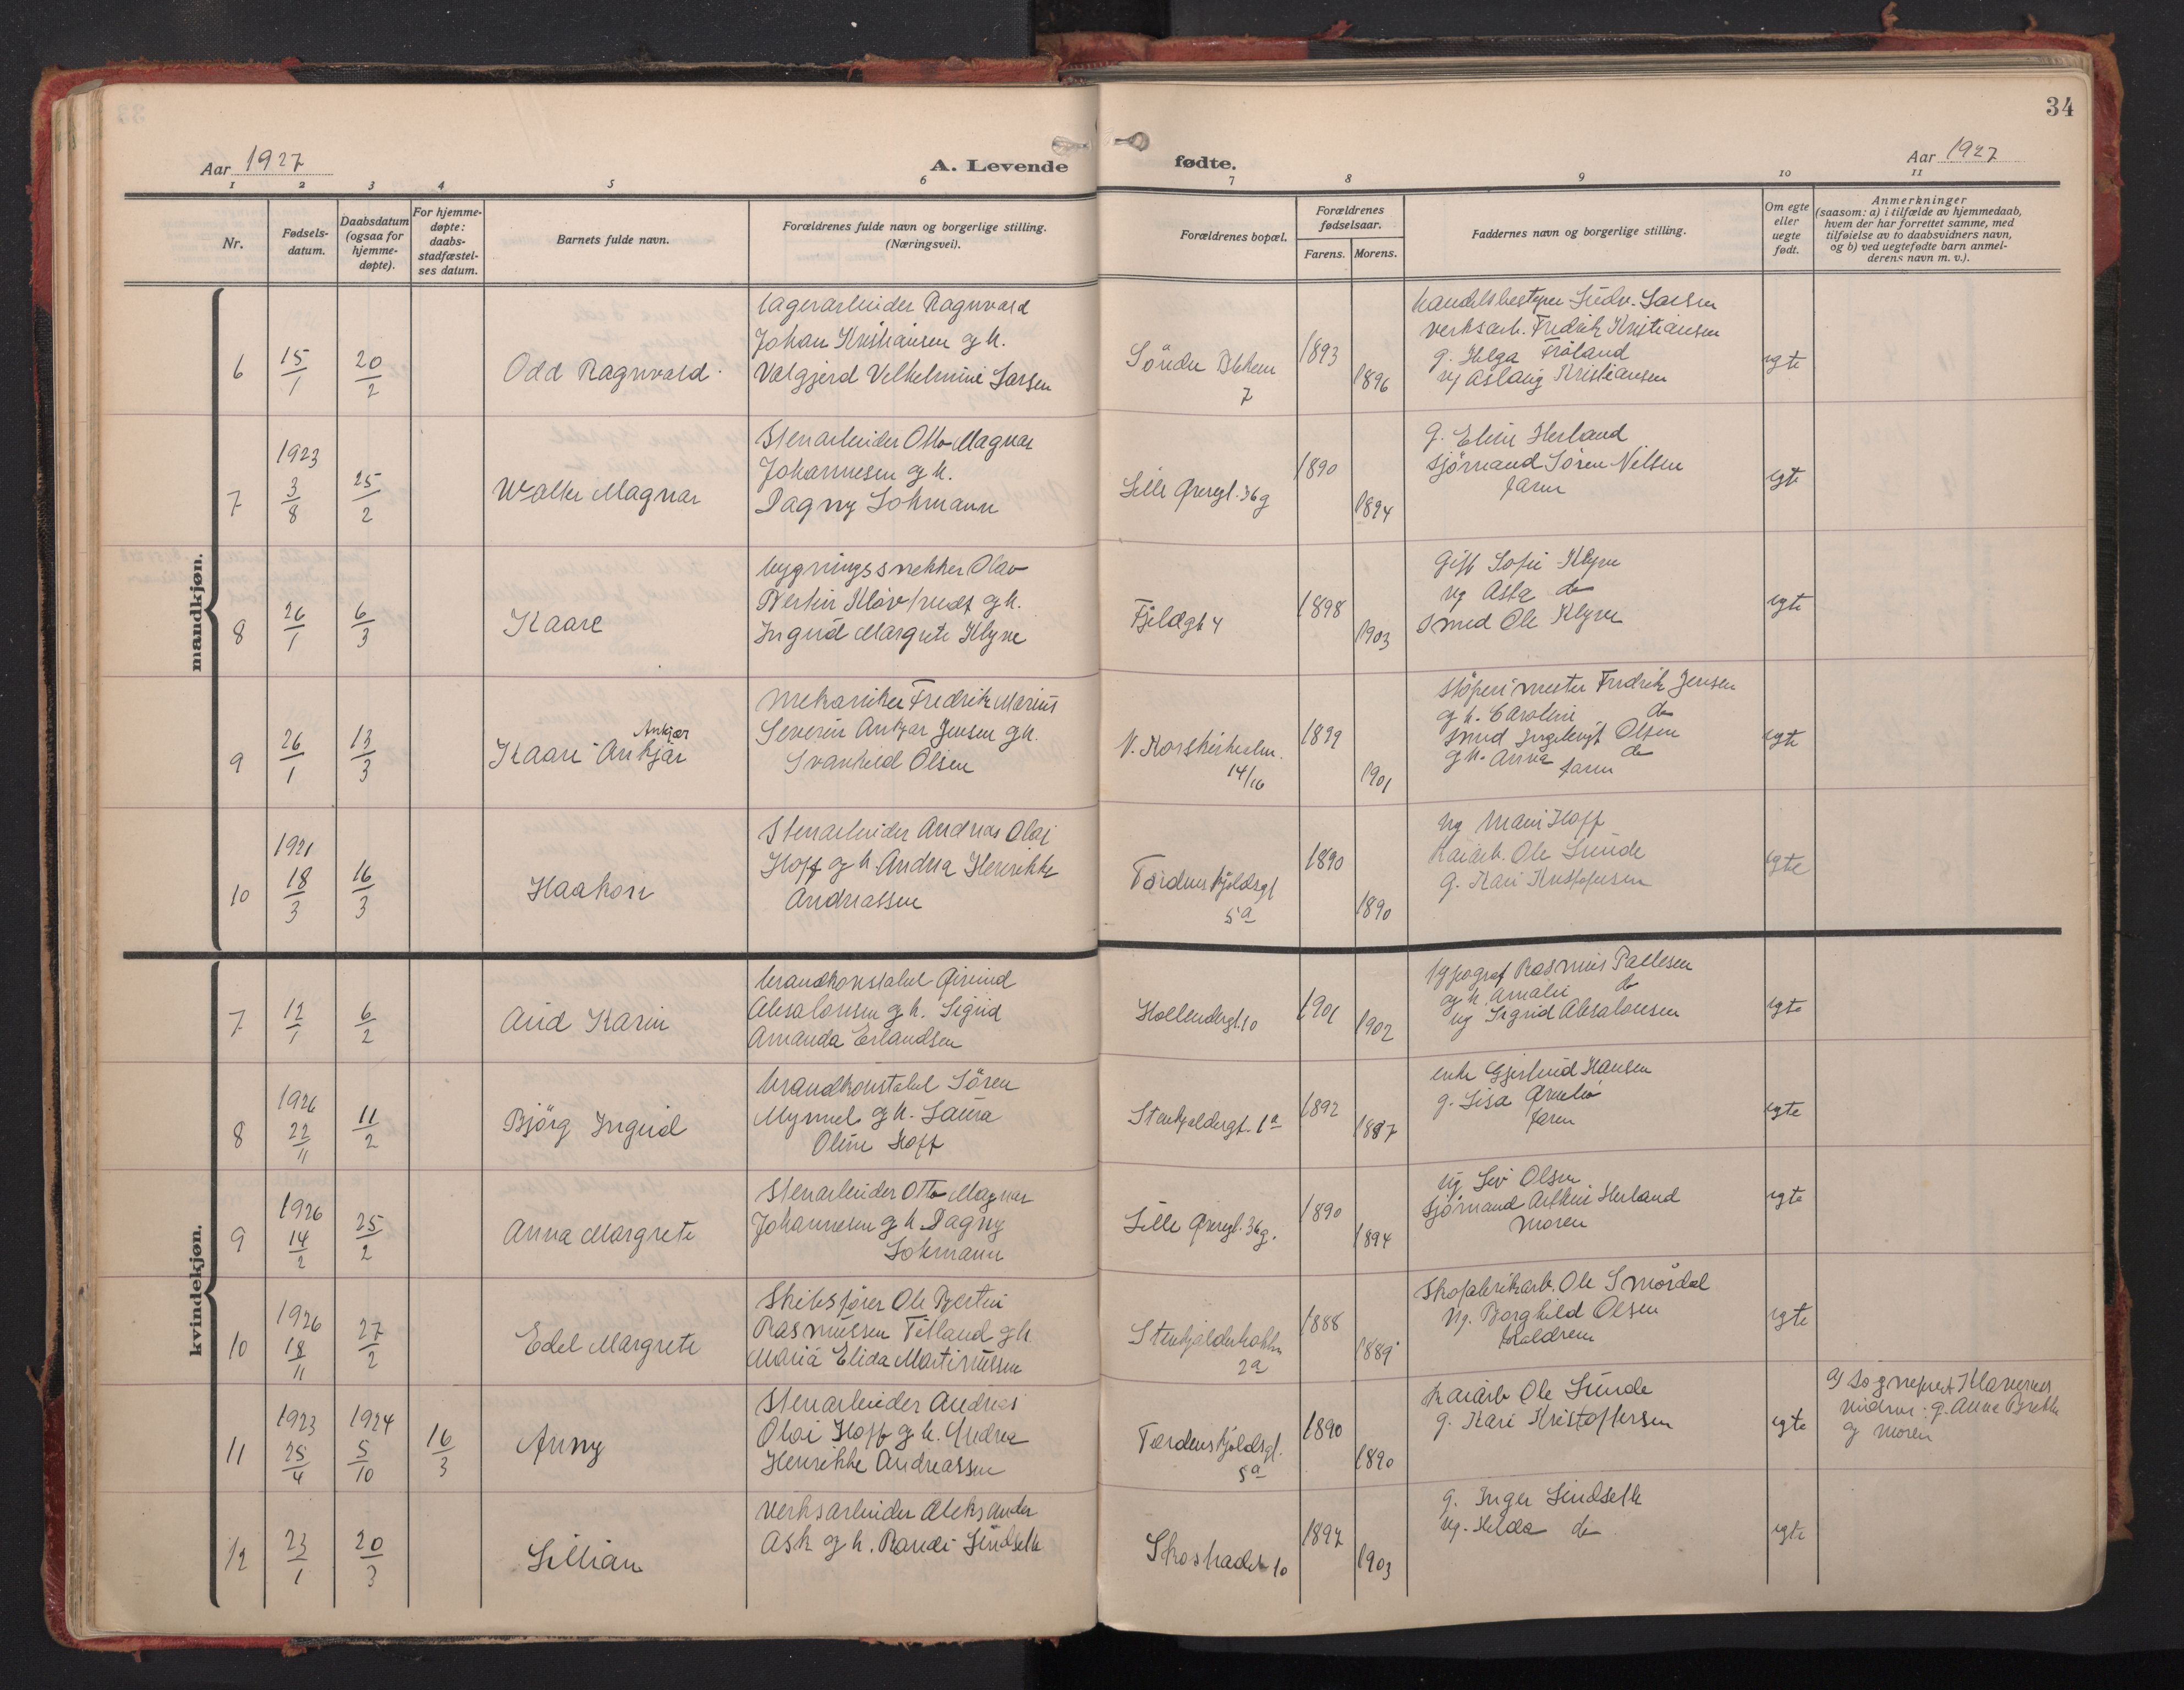 34
Aar 1927
A. Levende fødte.
Aar 1927
1 2 3 4 5 6 7 8 9 10 11
Nr.
Fødsels-
datum.
Daabsdatum
(ogsaa for
hjemme-
døpte).
For hjemme-
døpte:
daabs-
stadfæstel-
ses datum.
Barnets fulde navn.
Forældrenes fulde navn og borgerlige stilling.
(Næringsvei).
Forældrenes bopæl.
Forældrenes
fødselsaar.
Farens. Morens.
Faddernes navn og borgerlige stilling.
Om egte
eller
uegte
født.
Anmerkninger
(saasom: a) i tilfælde av hjemmedaab,
hvem der har forrettet samme, med
tilføielse av to daabsvidners navn,
og b) ved uegtefødte barn anmel-
derens navn m. v.).
mandkjøn.
6
15/1
20/2
Odd Ragnvald
lagerarbeider Ragnvald
Johan Kristiansen og h.
Valgjerd Velhelmine Larsen
Søndre
7
1893
1896
handelsbestyrer Ludv. Larsen
verksarb. Fredrik Kristiansen
g. Helga Frøland
ug Aslaug Kristiansen
egte
7
1923
3/8
25/2
Walter Magnar
Stenarbeider Otto Magnar
Johannesen og h.
Dagny Lohmann
Lille Øvregt. 36g
1890
1894
g. Eline Herland
sjømand Søren Nilsen
faren
egte
8
26/1
6/3
Kaare
bygningssnekker Olav
Bertin Kløvtveit og h.
Ingrid Margrete Klyve
Fjeldgt 4
1898
1903
gift Sofie Klyve
ug Asta do
smed Ole Klyve
egte
9
26/1
13/3
Ankjær
Kaare Ankjär
mekaniker Fredrik Marius
Severin Ankjær Jensen og h.
Svanhild Olsen
V. Korskirkealm.
14/16
1899
1901
støperimester Fredrik Jensen
og h. Caroline do
smed Ingebrigt Olsen
og h. Anna do
faren
egte
10
1921
18/3
16/3
Haakon
Stenarbeider Andreas Olai
Hoff og h. Andrea Henrikke
Andreassen
Tordenskjoldsgt
5a
1890
1890
ug Mari Hoff
kaiarb. Ole Sunde
g. Kari Kristofersen
egte
kvindekjøn.
7
12/1
6/2
Aud Karin
brandkonstabel Øivind
Absalonsen og h. Sigrid
Amanda Erlandsen
Hollendergt. 10
1901
1902
typograf Rasmus Pallesen
og h. Amalie do
ug Sigrid Absalonsen
egte
8
1926
22/11
11/2
Bjørg Ingrid
brandkonstabel Søren
Myrmel og h. Laura
Oline Hoff
Stenkjeldergt. 1a
1892
1887
enke Gjertrud Hansen
g. Lisa
faren
egte
9
1926
14/2
25/2
Anna Margrete
Stenarbeider Otto Magnar
Johannesen og h. Dagny
Lohmann
Lille Øvregt. 36g.
1890
1894
ug Liv Olsen
sjømand Arthur Herland
moren
egte
10
1926
18/11
27/2
Edel Margrete
Skibsfører Ole Bertin
Rasmussen Titland og h.
Maria Elida Martinussen
Stenkjelderbakken
2a
1888
1889
Skofabrikarb. Ole Smørdal
ug. Borghild Olsen
foreldrene
egte
11
1923
25/4
1924
5/10
16/3
Anny
Stenarbeider Andreas
Olai Hoff og h. Andrea
Henrikke Andreassen
Tordenskjoldsgt.
5a
1890
1890
kaiarb Ole Sunde
g. Kari Kristoffersen
egte
a) sogneprest
vidner: g. Anne
og moren
12
23/1
20/3
Lillian
verksarbeider Aleksander
Ask og h. Randi Lindseth
Skostrædet 10
1897
1903
g. Inger Lindseth
ug. Hilda do
egte